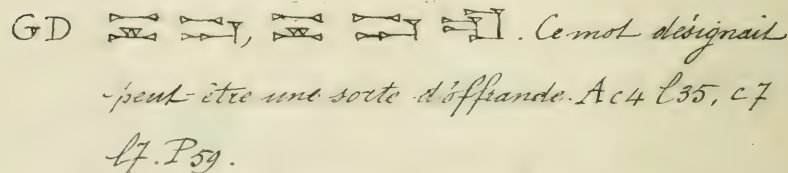 GD , . Ce mot désignait
peut-être une sorte d'offrande. A c4 l35, c7
l7. P59.